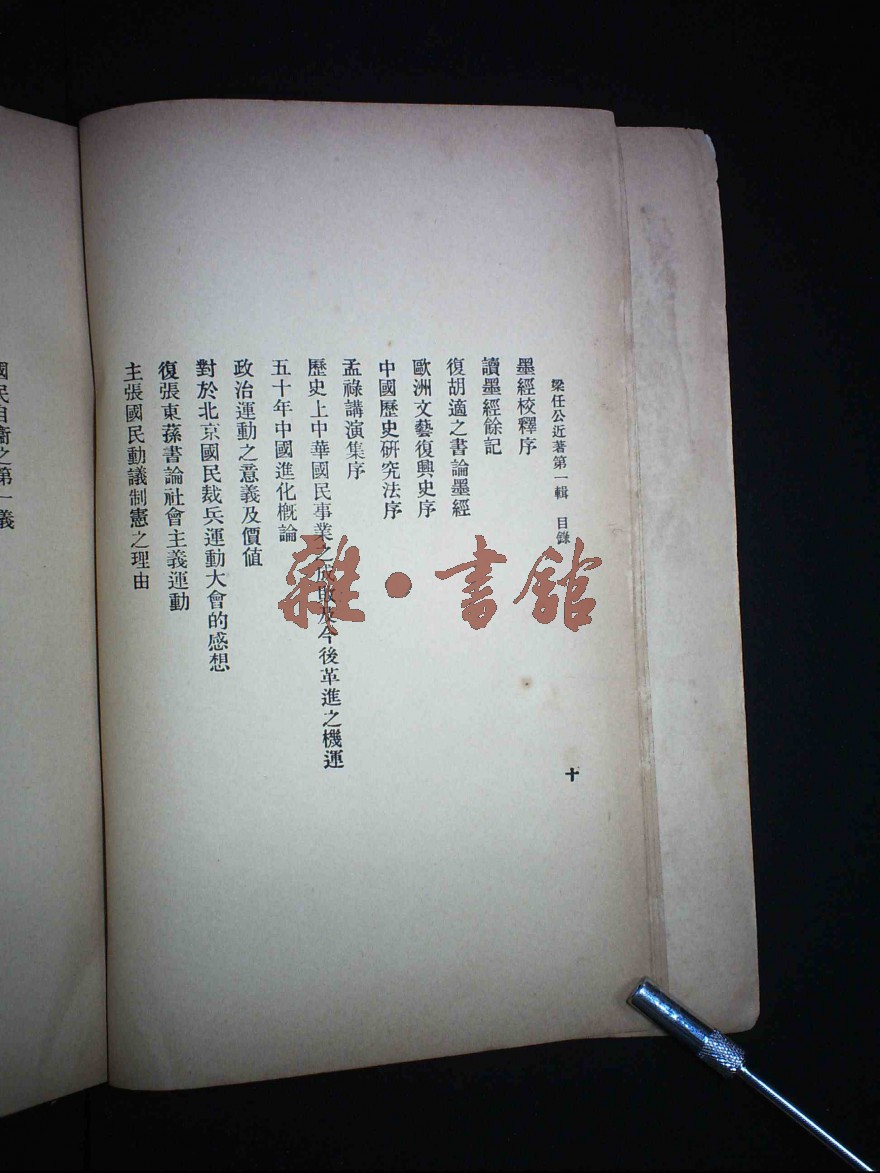 梁任公近著第一輯　目錄
十
墨經校釋序
讀墨經餘記
復胡適之書論墨經
歐洲文藝復興史序
中國歷史研究法序
孟祿講演集序
歷史上中華國民事業之成敗及今後革進之機運
五十年中國進化概論
政治運動之意義及價値
對於北京國民裁兵運動大會的感想
復張東蓀書論社會主義運動
主張國民動議制憲之理由
國民自衞之第一義
雜·書館